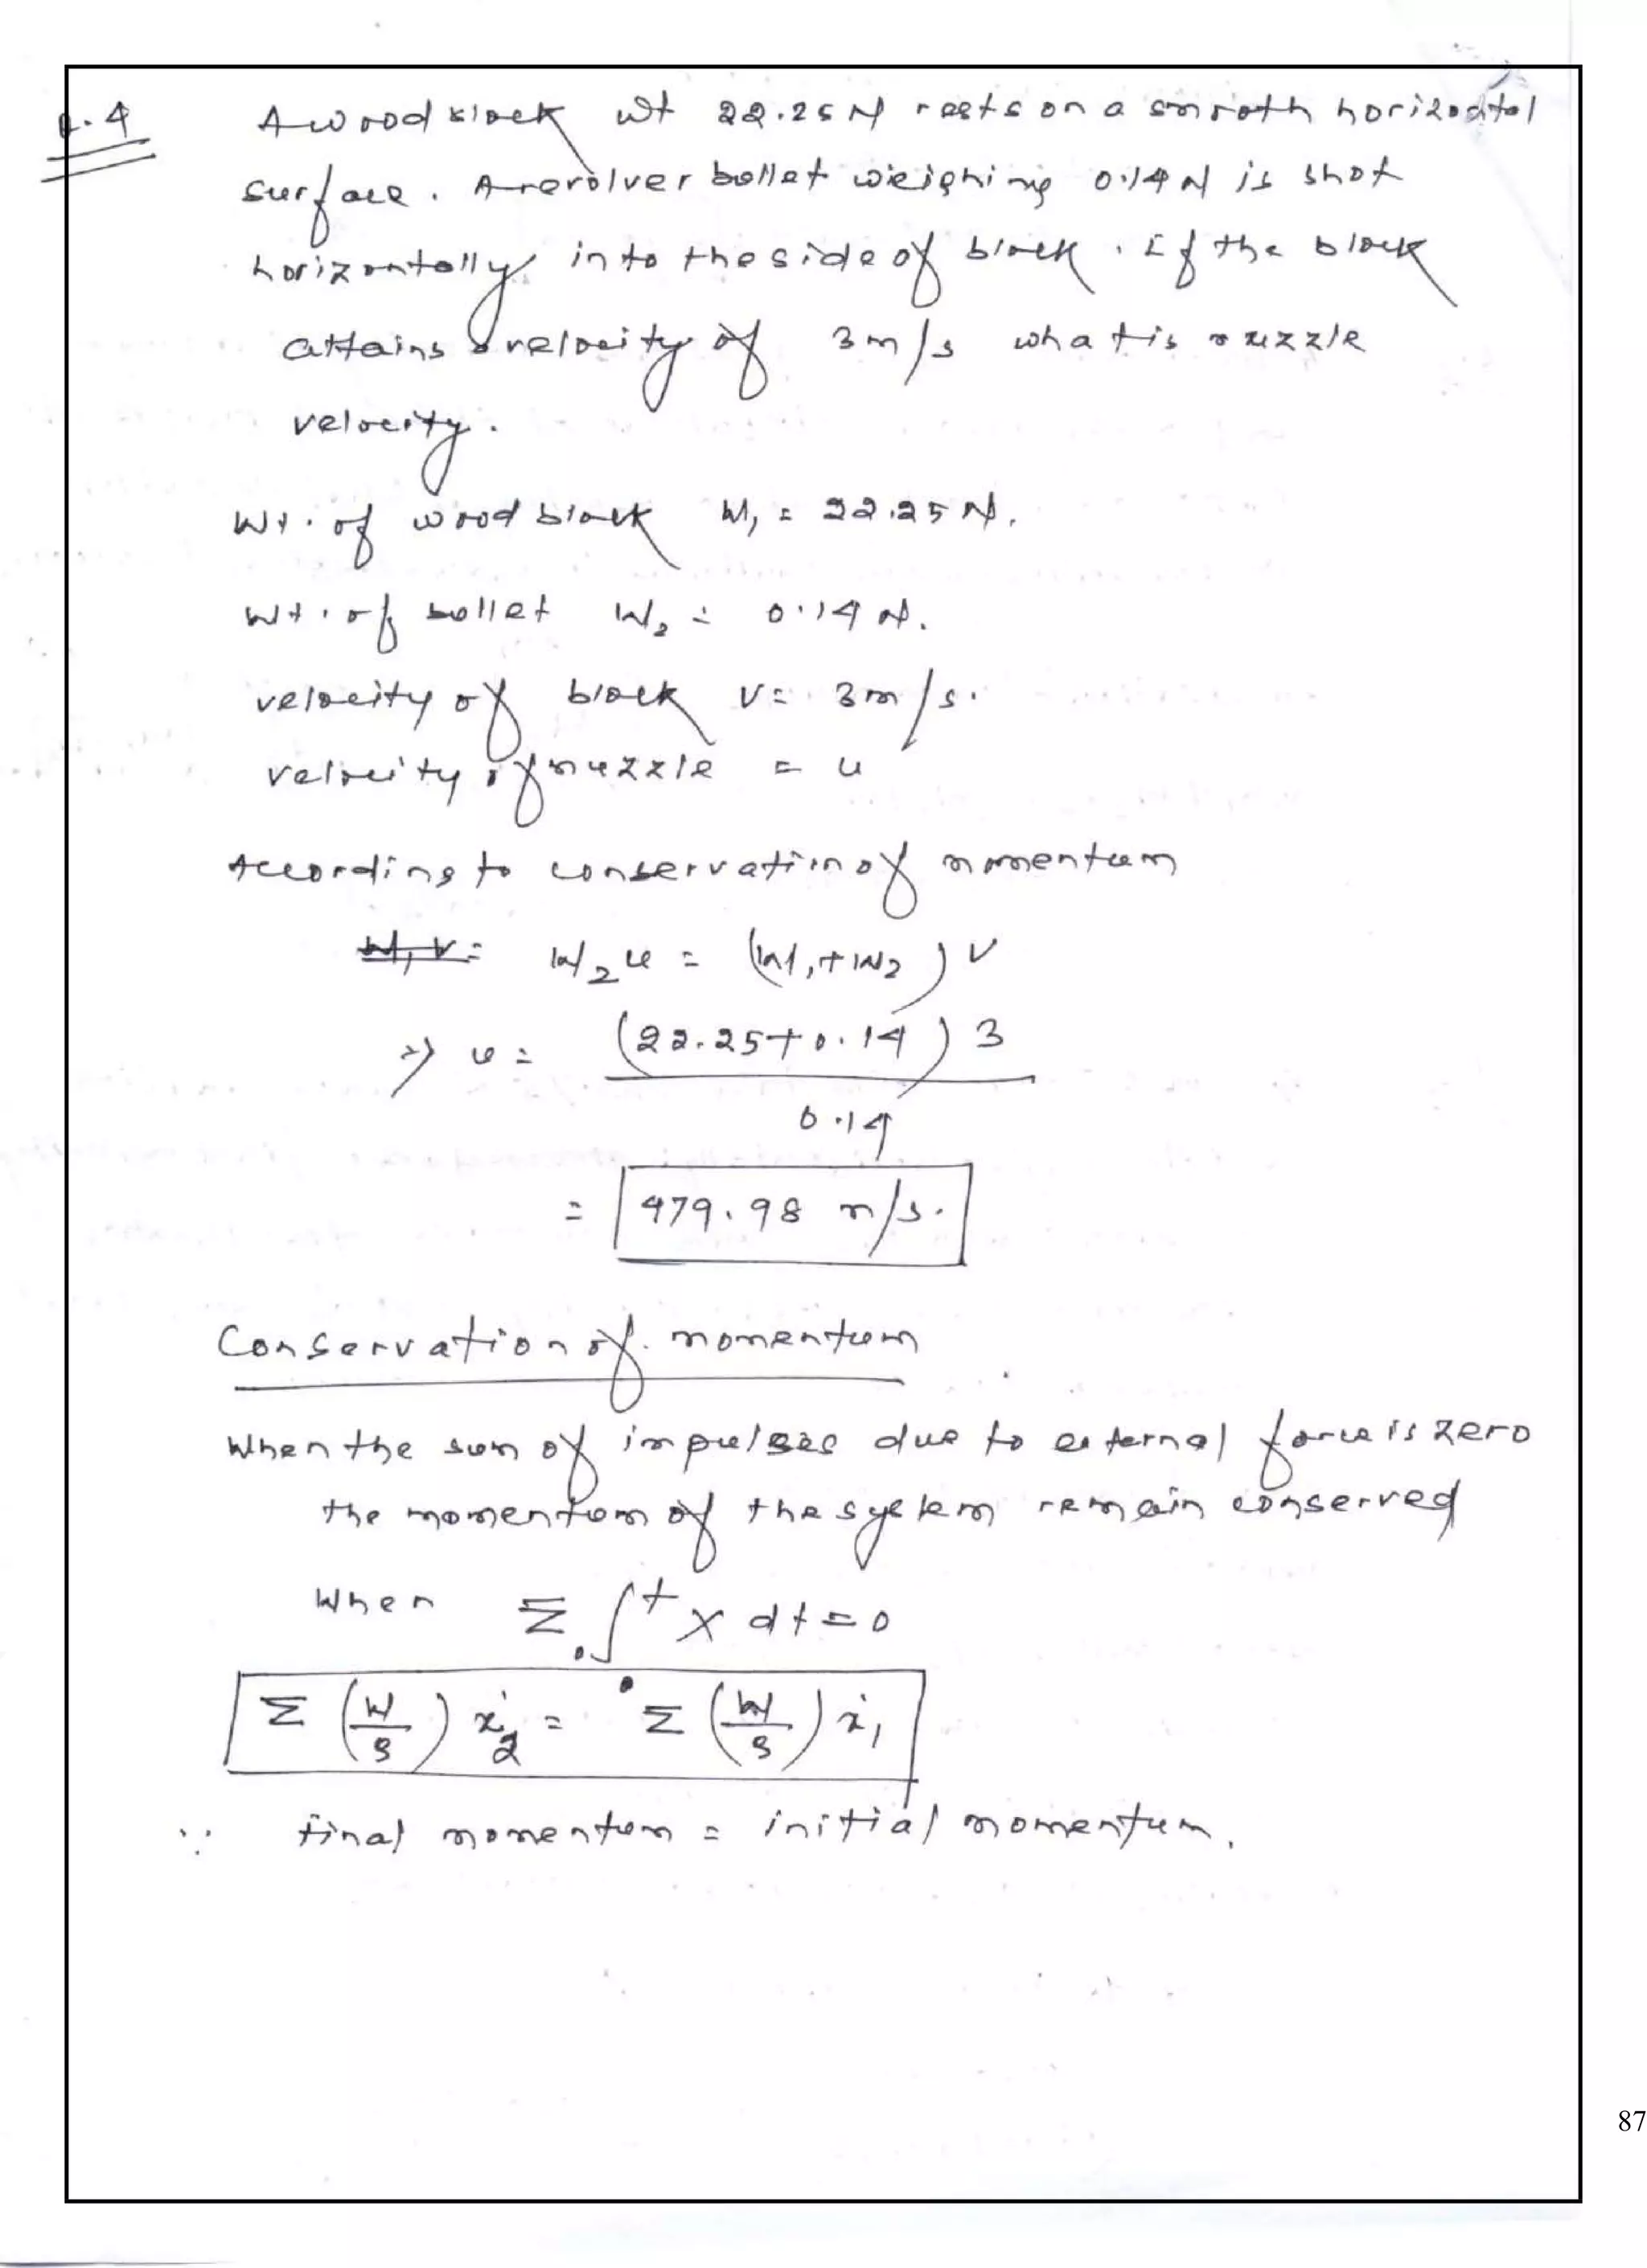 Q.4 A wood block wt 22.25 N rests on a smooth horizontal
surface. A revolver bullet weighing 0.14 N is shot
horizontally into the side of block. If the block
attains a velocity of 3 m/s what is muzzle
velocity.
Wt. of wood block W₁ = 22.25 N.
Wt. of bullet W₂ = 0.14 N.
velocity of block v = 3 m/s.
velocity of muzzle = u
According to conservation of momentum
W₁V = W₂u = (W₁+W₂) v
⇒ u = (22.25+0.14) 3
0.14
= 479.98 m/s.
Conservation of momentum
When the sum of impulses due to external force is zero
the momentum of the system remain conserved
When Σ ₀∫ᵗ X dt = 0
Σ (W/g) ẋ₂ = Σ (W/g) ẋ₁
∵ final momentum = initial momentum.
87